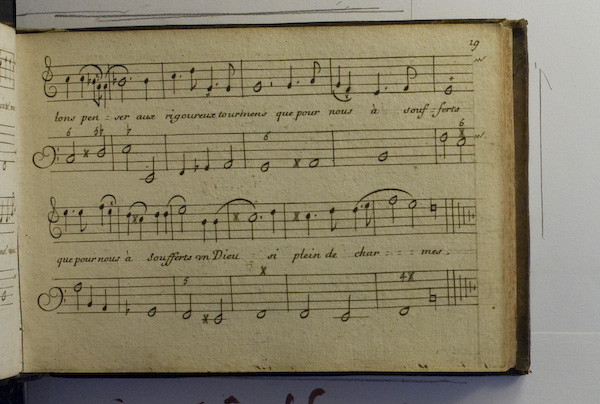 29
tons pen - ser aux rigoureux tourmens que pour nous à souf - ferts
6 5 6 6
que pour nous à soufferts vn Dieu si plein de char - - - mes.
5 4